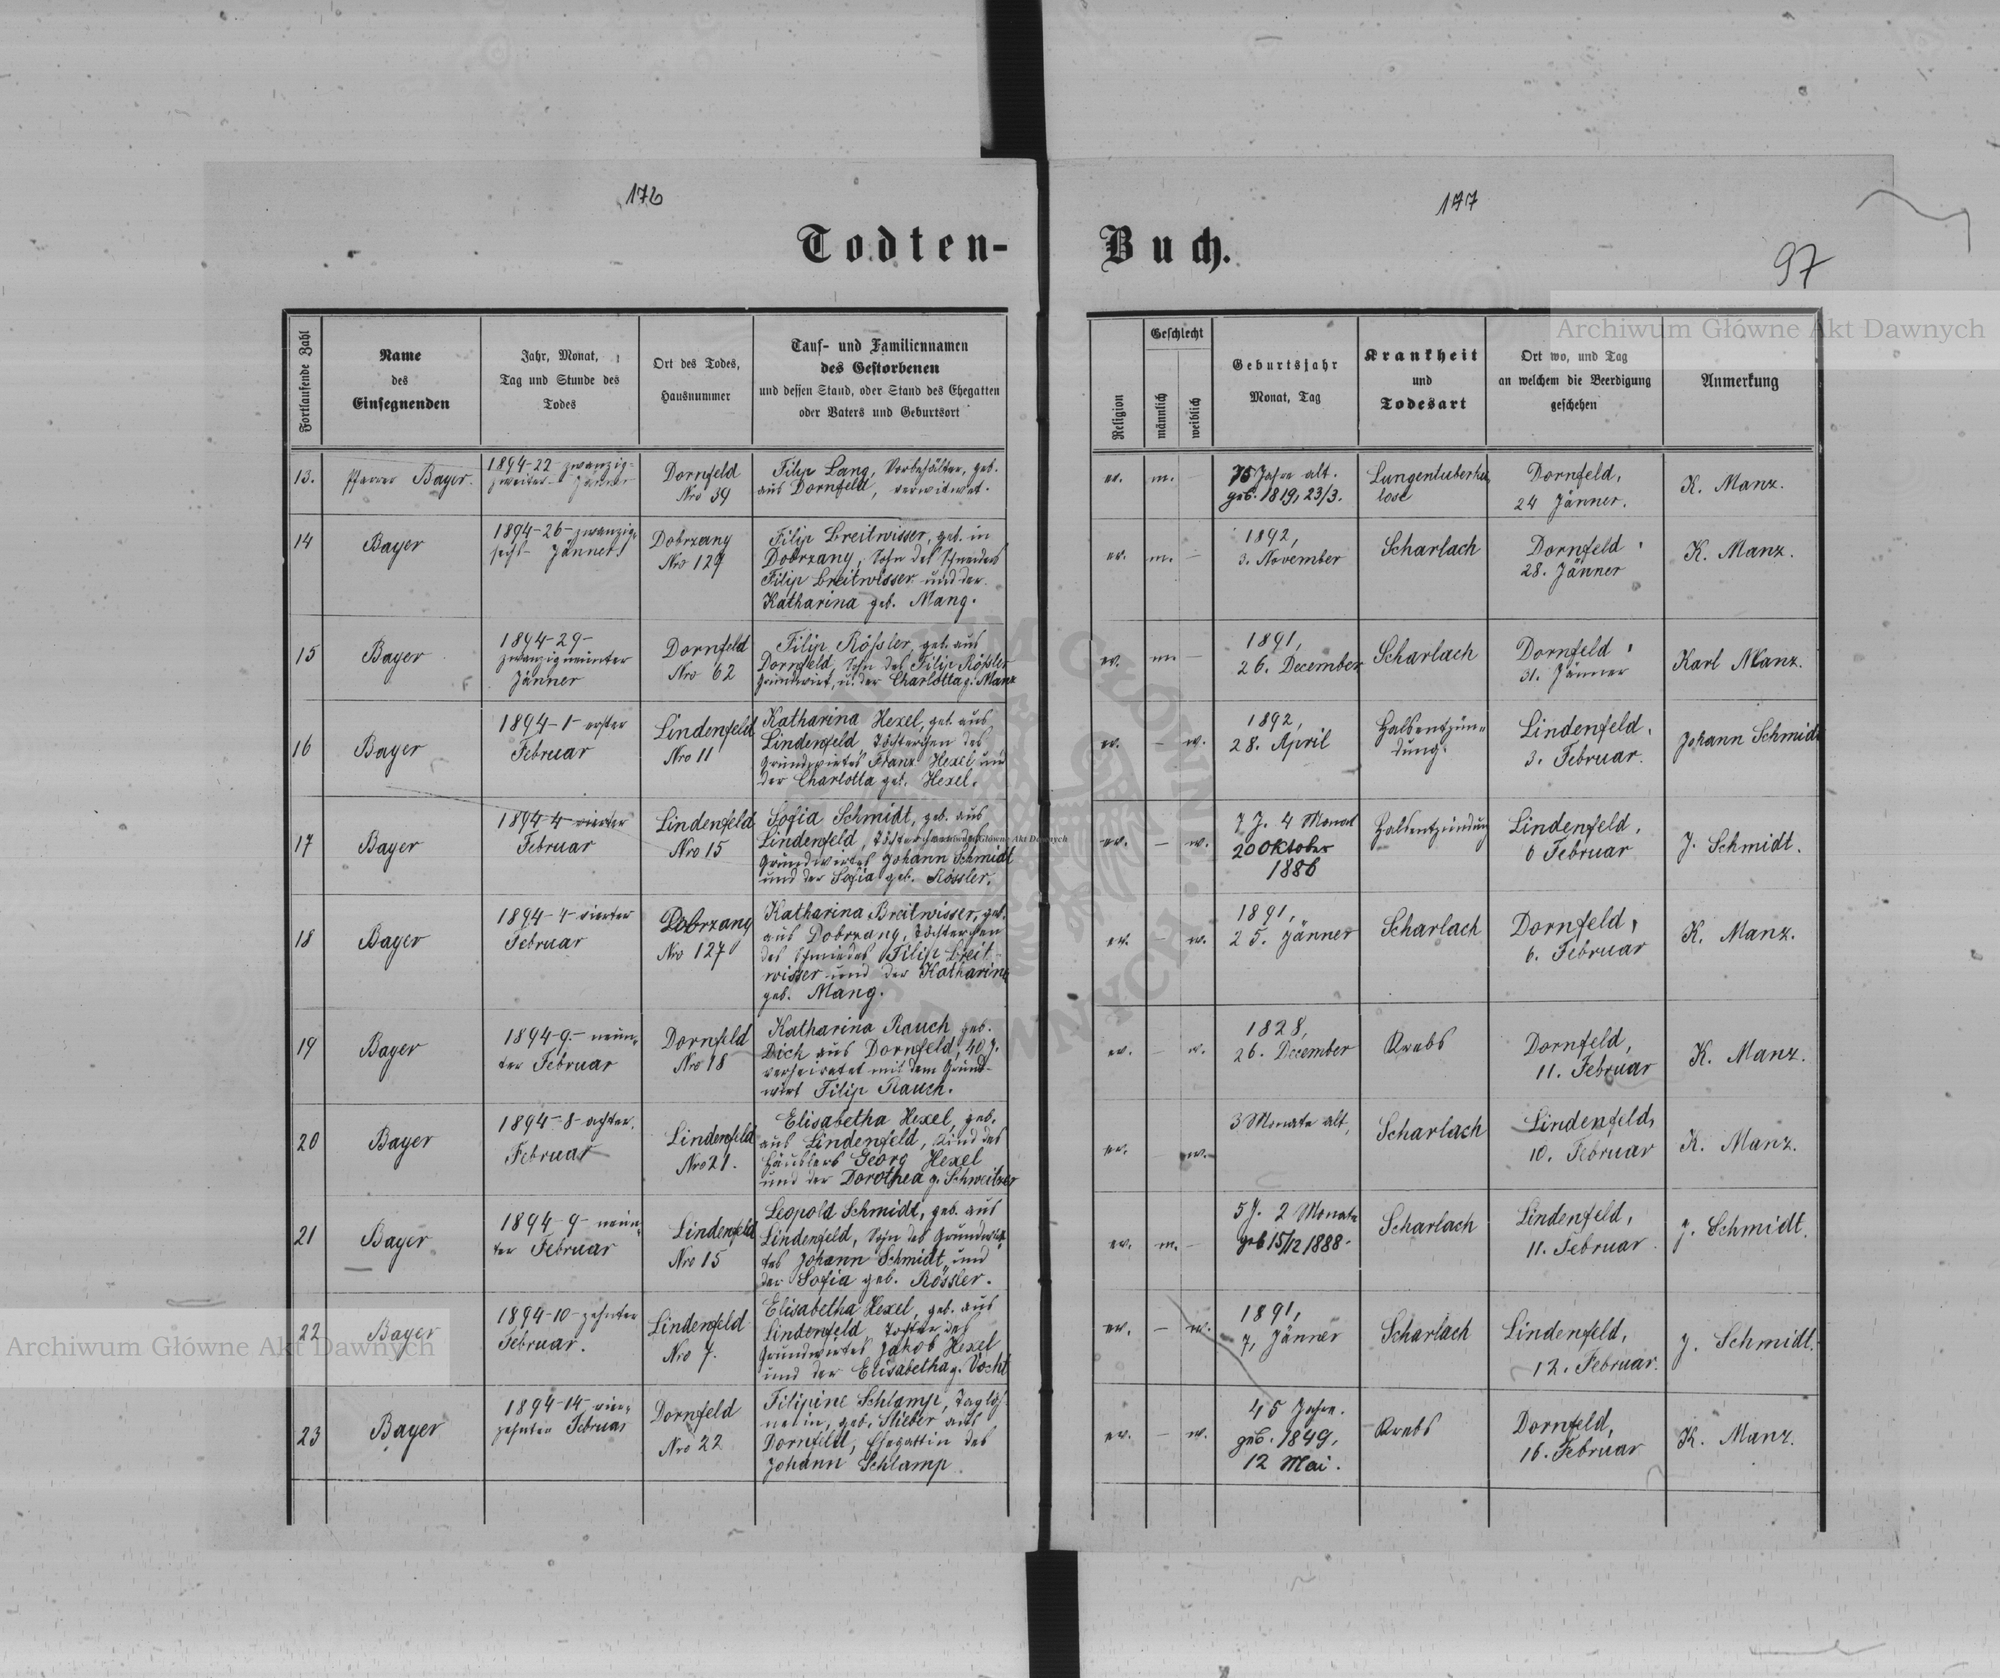 176
177
97
Todten-Buch.
Fortlaufende Zahl
Name
des
Einsegnenden
Jahr, Monat,
Tag und Stunde des
Todes
Ort des Todes,
Hausnummer
Tauf- und Familiennamen
des Gestorbenen
und dessen Stand, oder Stand des Ehegatten
oder Vaters und Geburtsort
Religion
Geschlecht
männlich
weiblich
Geburtsjahr
Monat, Tag
Krankheit
und
Todesart
Ort wo, und Tag
an welchem die Beerdigung
geschehen
Anmerkung
13.
Pfarrer Bayer.
1894-22 zwanzig-
zweiter- Jänner
Dornfeld
Nro 39
Filip Lang, Vorbehälter, geb.
aus Dornfeld, verwitwet.
ev.
m.
—
75 Jahre alt.
geb. 1819, 23/3.
Lungentuberku
lose
Dornfeld,
24 Jänner.
K. Manz.
14
Bayer
1894-26-zwanzig
sechs- Jänner
Dobrzany
Nro 129
Filip Breitwisser, geb. in
Dobrzany, Sohn des Schmiedes
Filip Breitwisser und der
Katharina geb. Mang.
ev.
m.
—
1892,
3. November
Scharlach
Dornfeld
28. Jänner
K. Manz.
15
Bayer
1894-29-
zwanzigneunter
Jänner
Dornfeld
Nro 62
Filip Rößler, geb. aus
Dornfeld, Sohn des Filip Rößler
Grundwirt, u. der Charlotta g. Manz
ev.
m.
—
1891,
26. December
Scharlach
Dornfeld
31. Jänner
Karl Manz.
16
Bayer
1894-1-erster
Februar
Lindenfeld
Nro 11
Katharina Hexel, geb. aus
Lindenfeld, Töchterchen des
Grundwirtes Franz Hexel und
der Charlotta geb. Hexel.
ev.
—
w.
1892,
28. April
Halsentzün-
dung.
Lindenfeld.
3. Februar.
Johann Schmidt
17
Bayer
1894-4-vierter
Februar
Lindenfeld
Nro 15
Sofia Schmidt, geb. aus
Lindenfeld, Töchterchen des
Grundwirtes Johann Schmidt
und der Sofia geb. Rössler.
ev.
—
w.
7 J. 4 Monat
20 Oktober
1886
Halsentzündung
Lindenfeld,
6 Februar
J. Schmidt.
18
Bayer
1894-4-vierter
Februar
Dobrzany
Nro 127
Katharina Breitwisser, geb.
aus Dobrzany, Töchterchen
des Schmiedes Filip Breit-
wisser und der Katharina
geb. Mang.
ev.
—
w.
1891,
25. Jänner
Scharlach
Dornfeld,
6. Februar
K. Manz.
19
Bayer
1894-9-neun-
ter Februar
Dornfeld
Nro 18
Katharina Rauch geb.
Dich aus Dornfeld, 40 J.
verheiratet mit dem Grund-
wirt Filip Rauch.
ev.
—
w.
1828,
26. December
Krebs
Dornfeld,
11. Februar
K. Manz.
20
Bayer
1894-8-achter.
Februar
Lindenfeld
Nro 21.
Elisabetha Hexel, geb.
aus Lindenfeld, Kind des
Häuslers Georg Hexel
und der Dorothea g. Schweitzer
ev.
w.
3 Monate alt,
Scharlach
Lindenfeld,
10. Februar
K. Manz.
21
Bayer
1894-9-neun-
ter Februar
Lindenfeld
Nro 15
Leopold Schmidt, geb. aus
Lindenfeld, Sohn des Grundwir-
tes Johann Schmidt, und
der Sofia geb. Rössler.
ev.
m.
—
5 J. 2 Monate
geb 15/12 1888.
Scharlach
Lindenfeld,
11. Februar
J. Schmidt.
22
Bayer
1894-10-zehnter
Februar.
Lindenfeld
Nro 7.
Elisabetha Hexel, geb. aus
Lindenfeld, Tochter des
Grundwirtes Jakob Hexel
und der Elisabetha g. Vocht
ev.
—
w.
1891,
7. Jänner
Scharlach
Lindenfeld,
12. Februar.
J. Schmidt.
23
Bayer
1894-14-vier-
zehnter Februar
Dornfeld
Nro 22
Filipine Schlamp, Taglöh-
nerin, geb. Stieber aus
Dornfeld, Ehegattin des
Johann Schlamp.
ev.
—
w.
45 Jahre.
geb. 1849,
12 Mai.
Krebs
Dornfeld,
16. Februar
K. Manz.
Archiwum Główne Akt Dawnych
Archiwum Główne Akt Dawnych